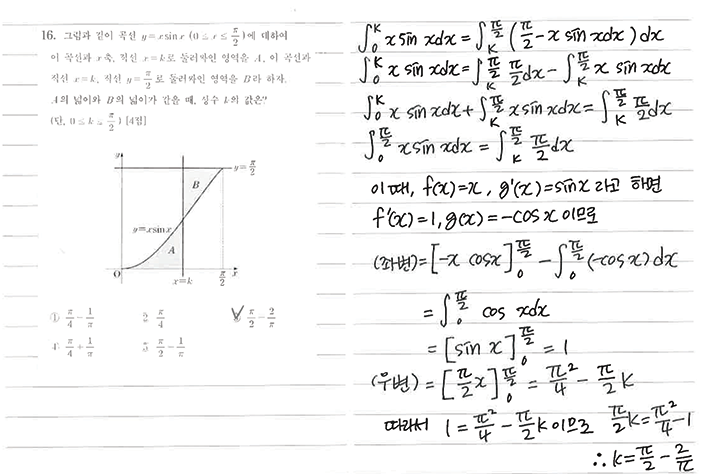 16. 그림과 같이 곡선 y = x sin x (0 ≤ x ≤ π/2)에 대하여
이 곡선과 x축, 직선 x = k로 둘러싸인 영역을 A, 이 곡선과
직선 x = k, 직선 y = π/2로 둘러싸인 영역을 B라 하자.
A의 넓이와 B의 넓이가 같을 때, 상수 k의 값은?
(단, 0 ≤ k ≤ π/2) [4점]
y
y = π/2
B
y = x sin x
A
O
x = k
π/2
x
① π/4 - 1/π
② π/4
③ π/2 - 2/π
④ π/4 + 1/π
⑤ π/2 - 1/π
∫_0^K x sin xdx = ∫_K^{π/2} (π/2 - x sin xdx) dx
∫_0^K x sin xdx = ∫_K^{π/2} π/2 dx - ∫_K^{π/2} x sin xdx
∫_0^K x sin xdx + ∫_K^{π/2} x sin xdx = ∫_K^{π/2} π/2 dx
∫_0^{π/2} x sin xdx = ∫_K^{π/2} π/2 dx
이 때, f(x) = x, g'(x) = sin x 라고 하면
f'(x) = 1, g(x) = -cos x 이므로
(좌변) = [-x cos x]_0^{π/2} - ∫_0^{π/2} (-cos x) dx
= ∫_0^{π/2} cos xdx
= [sin x]_0^{π/2} = 1
(우변) = [π/2 x]_0^{π/2} = π²/4 - π/2 k
따라서 1 = π²/4 - π/2 k 이므로 π/2 k = π²/4 - 1
∴ k = π/2 - 2/π